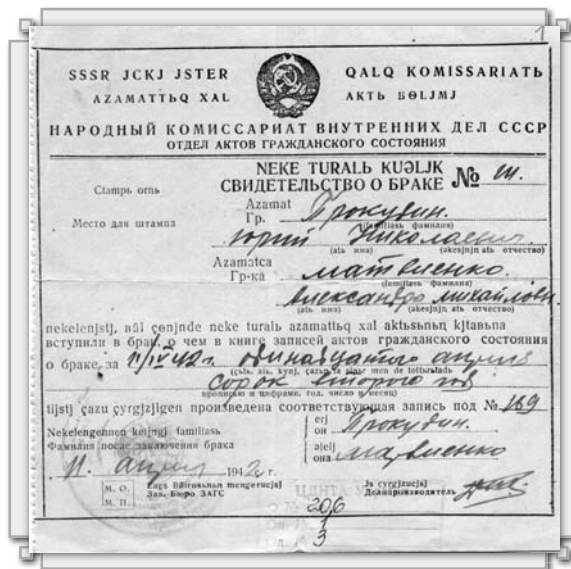 1
SSSR JCKJ JSTER QALQ KOMISSARIATЬ
AZAMATTЬQ XAL AKTЬ BӨLJMJ
НАРОДНЫЙ КОМИССАРИАТ ВНУТРЕННИХ ДЕЛ СССР
ОТДЕЛ АКТОВ ГРАЖДАНСКОГО СОСТОЯНИЯ
NEKE TURALЬ KUƏLJK
СВИДЕТЕЛЬСТВО О БРАКЕ №
Ctampь ornь
Место для штампа
Azamat
Гр. Прокудин.
(familiasь фамилия)
Юрий Николаевич.
(atь имя) (əkesjnjꞑ atь отчество)
Azamatca
Гр-ка Матвиенко.
(familiasь фамилия)
Александра Михайловн.
(atь имя) (əkesjnjꞑ atь отчество)
nekelenjstj, вɨl çөnjnde neke turalь azamattьq xal aktьsьnьꞑ kjtaвьna
вступили в брак, о чем в книге записей актов гражданского состояния
о браке за 11/IV 42 г. одинадцатого апреля
сорок второго год
прописью и цифрами, год, число и месяц)
tijstj çazu çyrgjzjlgen произведена соответствующая запись под № 169
Nekelengennen kejingj familiasь
Фамилия после заключения брака
erj
он Прокудин.
əjelj
она Матвиенко
11. апреля 1942 г.
М. О.
М. П.
Зав. Бюро ЗАГС
Js çyrgjzucjsj
Делопроизводитель
206
3